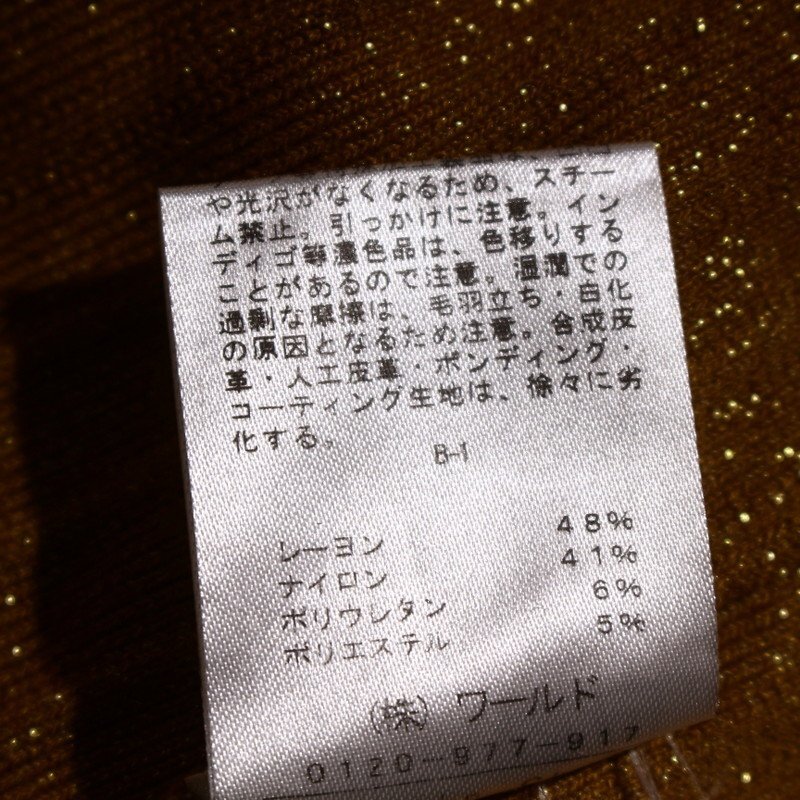 や光沢がなくなるため、スチー
ム禁止。引っかけに注意。イン
ディゴ等濃色品は、色移りする
ことがあるので注意。湿潤での
過剰な摩擦は、毛羽立ち・白化
の原因となるため注意。合成皮
革・人工皮革・ボンディング・
コーティング生地は、徐々に劣
化する。
B-1
レーヨン 48%
ナイロン 41%
ポリウレタン 6%
ポリエステル 5%
(株) ワールド
0120-977-917